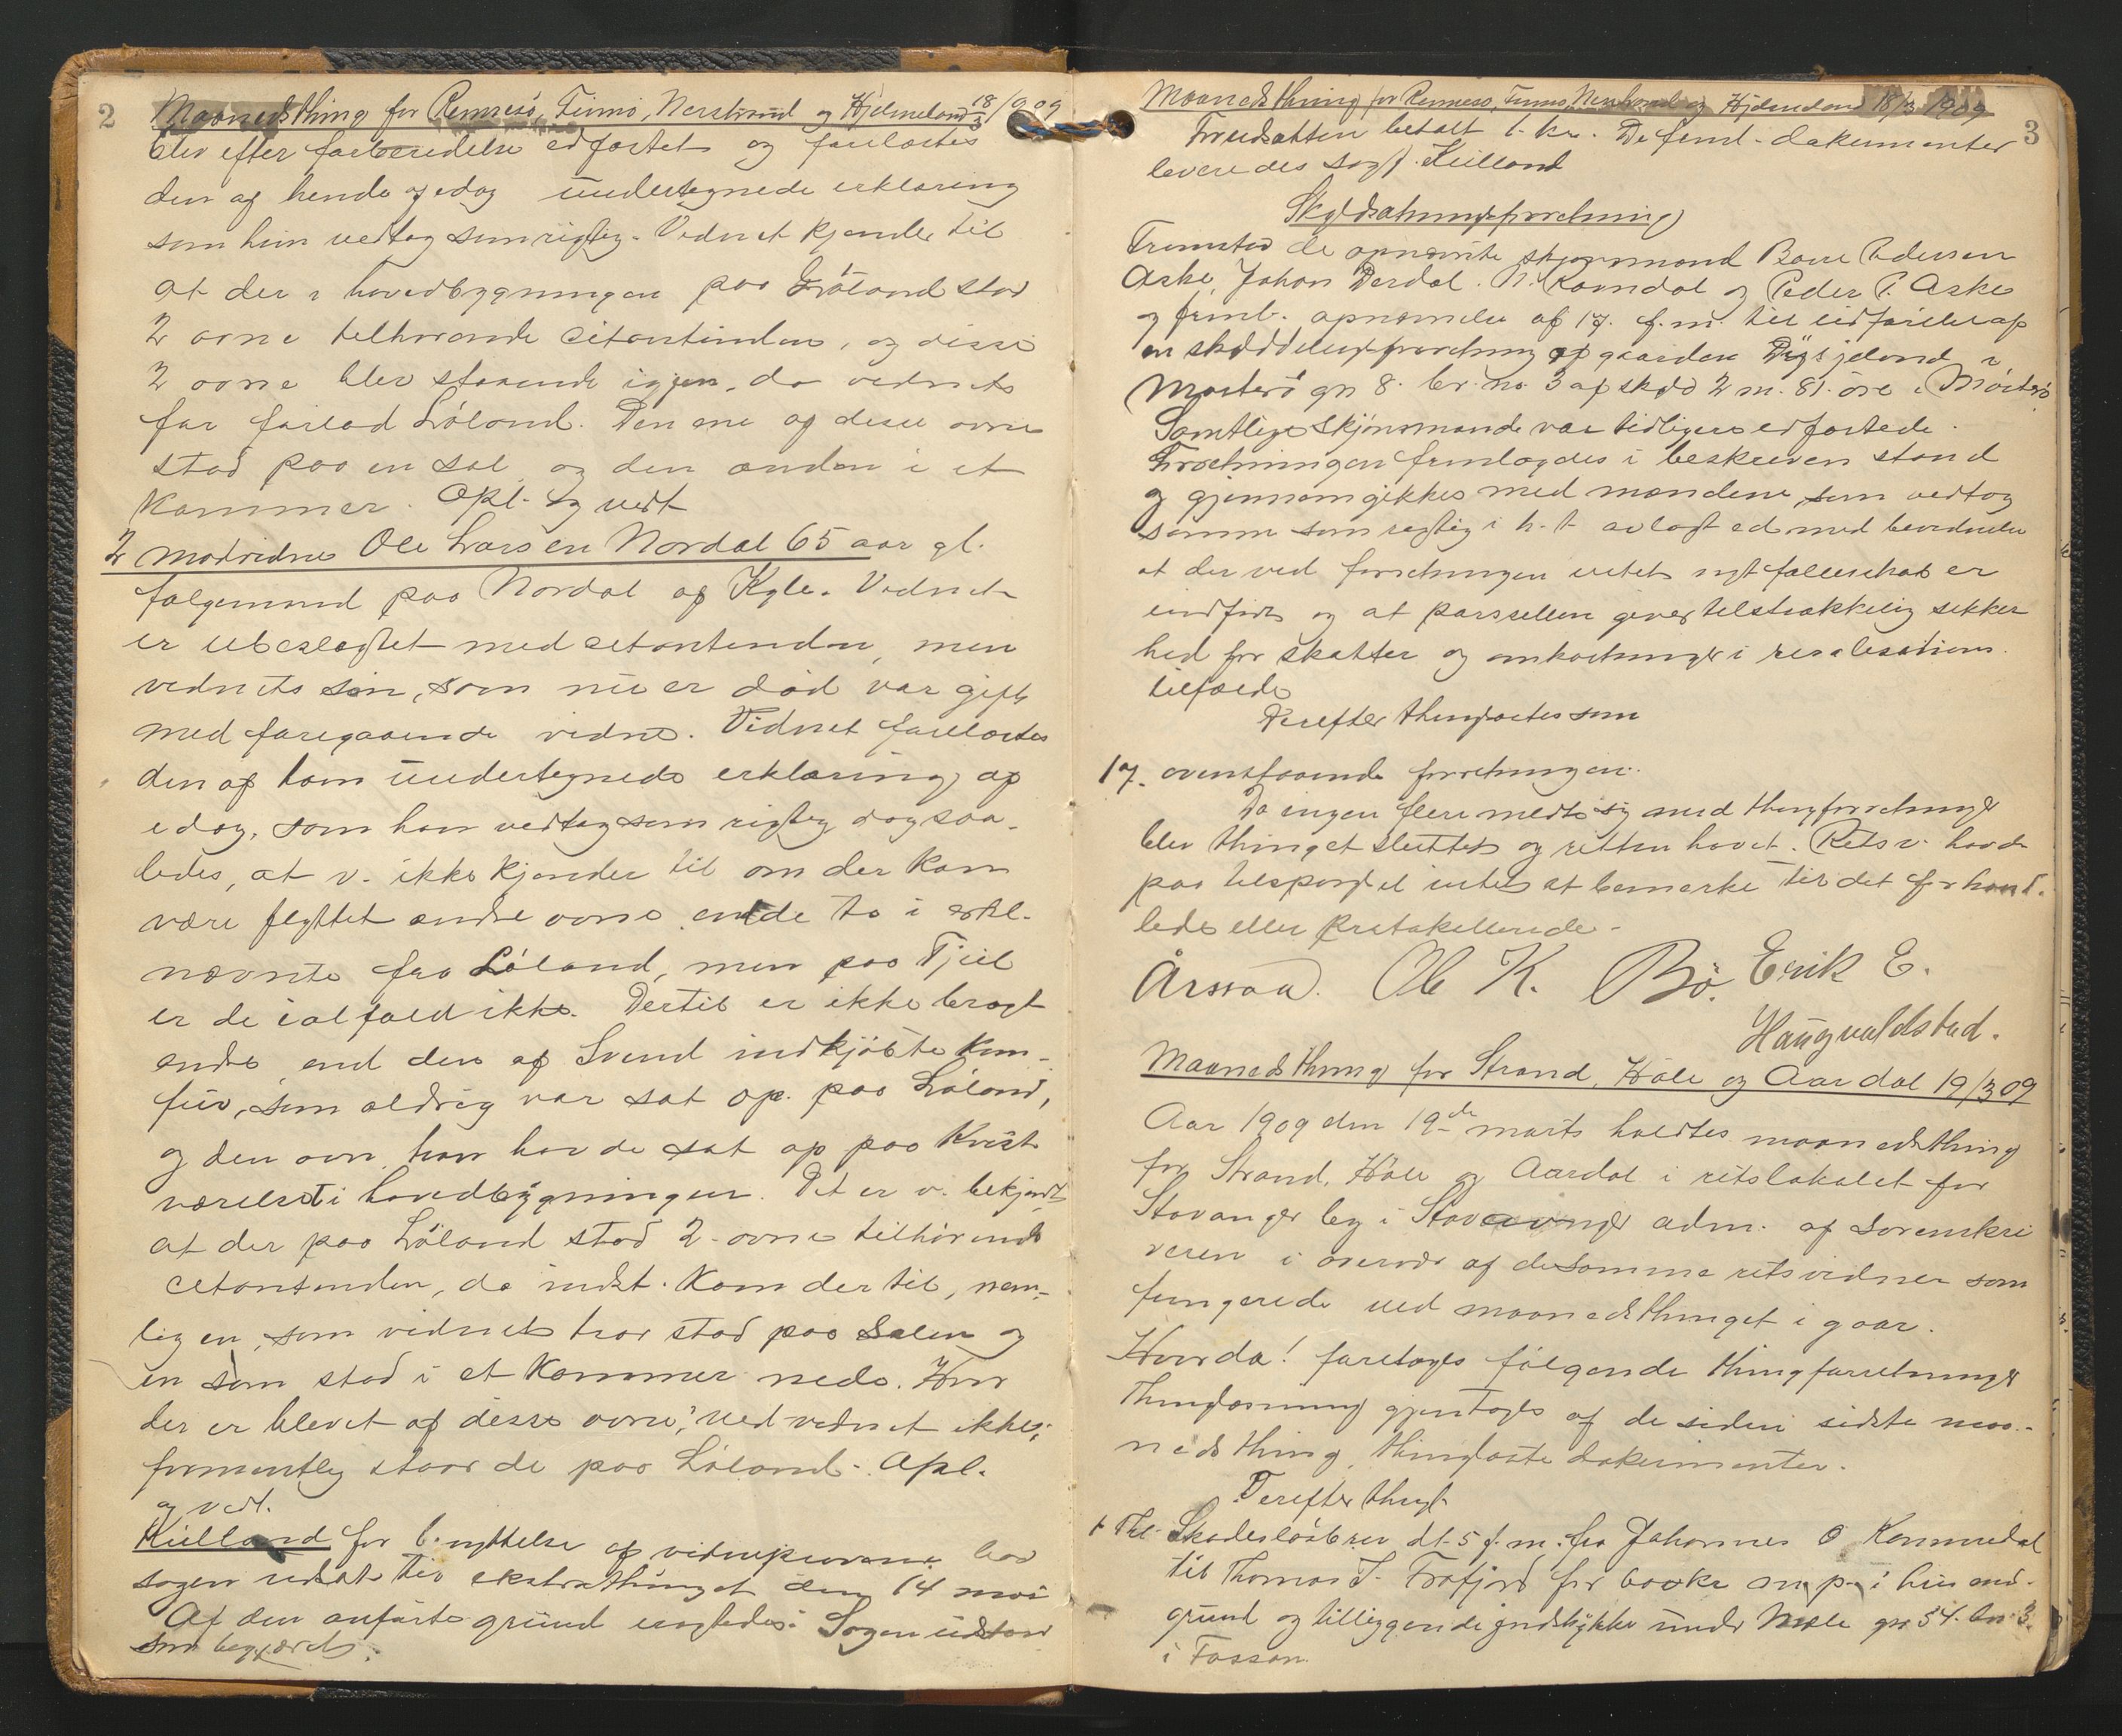 2
Maanedsthing for Rennesö, Finnö, Nerstrand og Hjelmeland 18/3 09
blev efter forberedelse edfæstet og forelæstes
den af hende af idag undertegnede erklæring
som hun vedtog som rigtig. Vidnet kjender til
at der i hovedbygningen paa Löland stod
2 ovne tilhørende citantinden, og disse
2 ovne blev staaende igjen, da vednets
far forlod Löland. Den ene af disse ovne
stod paa en sal og den anden i et
kammer. Opl. og vedt
2 modvidne Ole Larsen Nordal 65 aar gl.
folgemand paa Nordal af Kyle. Vidnet
er ubeslegtet med citantinden, men
vednets sön, som nu er död var gift
med foregaaende vidne. Vidnet forelæstes
den af ham undertegnede erklæring af
idag, som han vedtog som rigtig dogsaa-
ledes, at v. ikke kjender til om der kan
være flyttet andre ovne end de to i erkl.
nævnte fra Löland, men paa Tjül
er de ialfald ikke. Dertil er ikke bragt
andre end den af Svend indkjöbte kom-
für, som aldrig var sat op paa Löland,
og den ovn han havde sat op paa Kvist
værelset i hovedbygningen. Det er v. bekjendt
at der paa Löland stod 2 ovne tilhörende
citantinden, da indst. kom der til, nem-
lig en, som vidnet tror stod paa Salen og
en som stod i et kammer nede. Hvor
der er blevet af disse ovne, ved vidnet ikke;
formentlig staar de paa Löland. Opl.
og vedt.
Kielland for benyttelse af vidneprovene bad
sagen udsat til ekstrathinget den 14 mai
Af den anførte grund eragtedes: Sagen udstaar
som begjæret.
Maanedsthing for Rennesö, Finnö, Nerstrand og Hjelmeland 18/3 1909
3
Fremsatten betalt 1 kr. De freml. dokumenter
leveredes sagf. Kielland
Skyldsætningsforretning
Fremstod de opnævnte skjönsmænd Baue Pedersen
Aske, Johan Dardal. N. Ramdal og Peder P. Aske
og freml. opnævnelse af 17. f.m. til udførelse af
en skylddelingsforretning af gaarden Dysjeland i
Mosterö gn 8. br. no. 3 af skyld 2 m. 81. öre i Mosterö
Samtlige skjönsmænd var tidligere edfæstede.
Forretningen fremlagdes i beskreven stand
og gjennemgikkes med mændene, som vedtog
samme som rigtig i h. t. avlagt ed med bevidnelse
at der ved forretningen intet nyt fælleskab er
indført og at parsellen giver tilstrækkelig sikker
hed for skatter og omkostninger i realisations
tilfælde
Derefter thinglæstes som
17. ovenstaaende forretningen.
Da ingen flere meldte sig med thingforretninger
blev thinget sluttet og retten hævet. Rets v. havde
paa tilspørgsel intet at bemerke til det forhand-
lede eller protokollerede.
Årsvoll. Ole K. Bö. Erik E.
Haugvaldstad.
Maanedsthing for Strand, Höle og Aardal 19/3 09
Aar 1909 den 19de marts holdtes maanedsthing
for Strand, Höle og Aardal i retslokalet for
Stavanger by i Stavanger adm. af sorenskri
veren i overvær af de samme retsvidner som
fungerede ved maanedsthinget i gaar.
Hvorda! foretoges fölgende thingforretninger
Thinglæsning gjentoges af de siden sidste maa-
nedsthing thinglæste dokumenter.
Derefter thingl.
1 Thl. Skadeslösbrev dt. 5 f.m. fra Johannes O Kommedal
til Thomas T. Frafjord for banke m. p. i hus med
grund og tilliggende jordstykke under Mæle gn 54. br. 3
i Fossan.